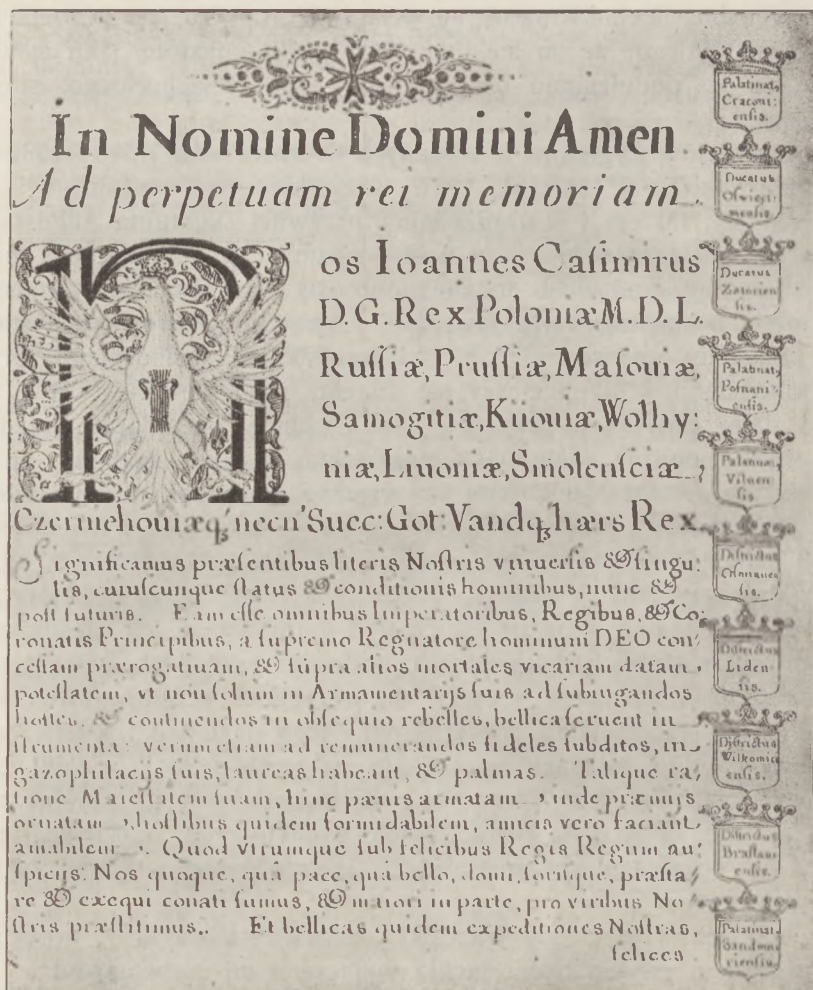 In Nomine Domini Amen
Ad perpetuam rei memoriam.
Nos Ioannes Caſimirus
D.G.Rex Poloniæ M.D.L.
Ruſſiæ, Pruſſiæ, Maſouiæ,
Samogitiæ, Kiiouiæ, Wolhy:
niæ, Liuoniæ, Smolenſciæ,
Czerniehouiæq; necn' Succ: Got: Vandq; hærs Rex.
Significamus præſentibus literis Noſtris vniuerſis & ſingu:
lis, cuiuſcunque ſtatus & conditionis hominibus, nunc &
poſt futuris. Eam eſſe omnibus Imperatoribus, Regibus, & Co:
ronatis Principibus, a ſupremo Regnatore hominum DEO con:
ceſſam prærogatiuam, & ſupra alios mortales vicariam datam,
poteſtatem, vt non ſolum in Armamentarijs ſuis ad ſubiugandos
hoſtes, & continendos in obſequio rebelles, bellica ſeruent in
ſtrumenta: verum etiam ad remunerandos fideles ſubditos, in
gazophilacijs ſuis, laureas habeant, & palmas. Talique ra:
tione Maieſtatem ſuam, hinc pœnis armatam, inde præmijs
ornatam, hoſtibus quidem formidabilem, amicis vero faciant
amabilem. Quod vtrumque ſub felicibus Regis Regum au:
ſpicijs: Nos quoque, quà pace, quà bello, domi, foriſque, præſta:
re & exequi conati ſumus, & maiori in parte, pro viribus No:
ſtris præſtitimus. Et bellicas quidem expeditiones Noſtras,
felices
Palatinat,
Cracoui:
enſis.
Ducatus
Oſwieci:
menſis.
Ducatus
Zatorien
ſis.
Palatinat,
Poſnani:
enſis.
Palatinat,
Vilnen
ſis.
Diſtrictus
Oſmianen
ſis.
Diſtrictus
Liden
ſis.
Diſtrictus
Wilkomiri
enſis.
Diſtrictus
Braſlaui
enſis.
Palatinat,
Sandomi
rienſis.